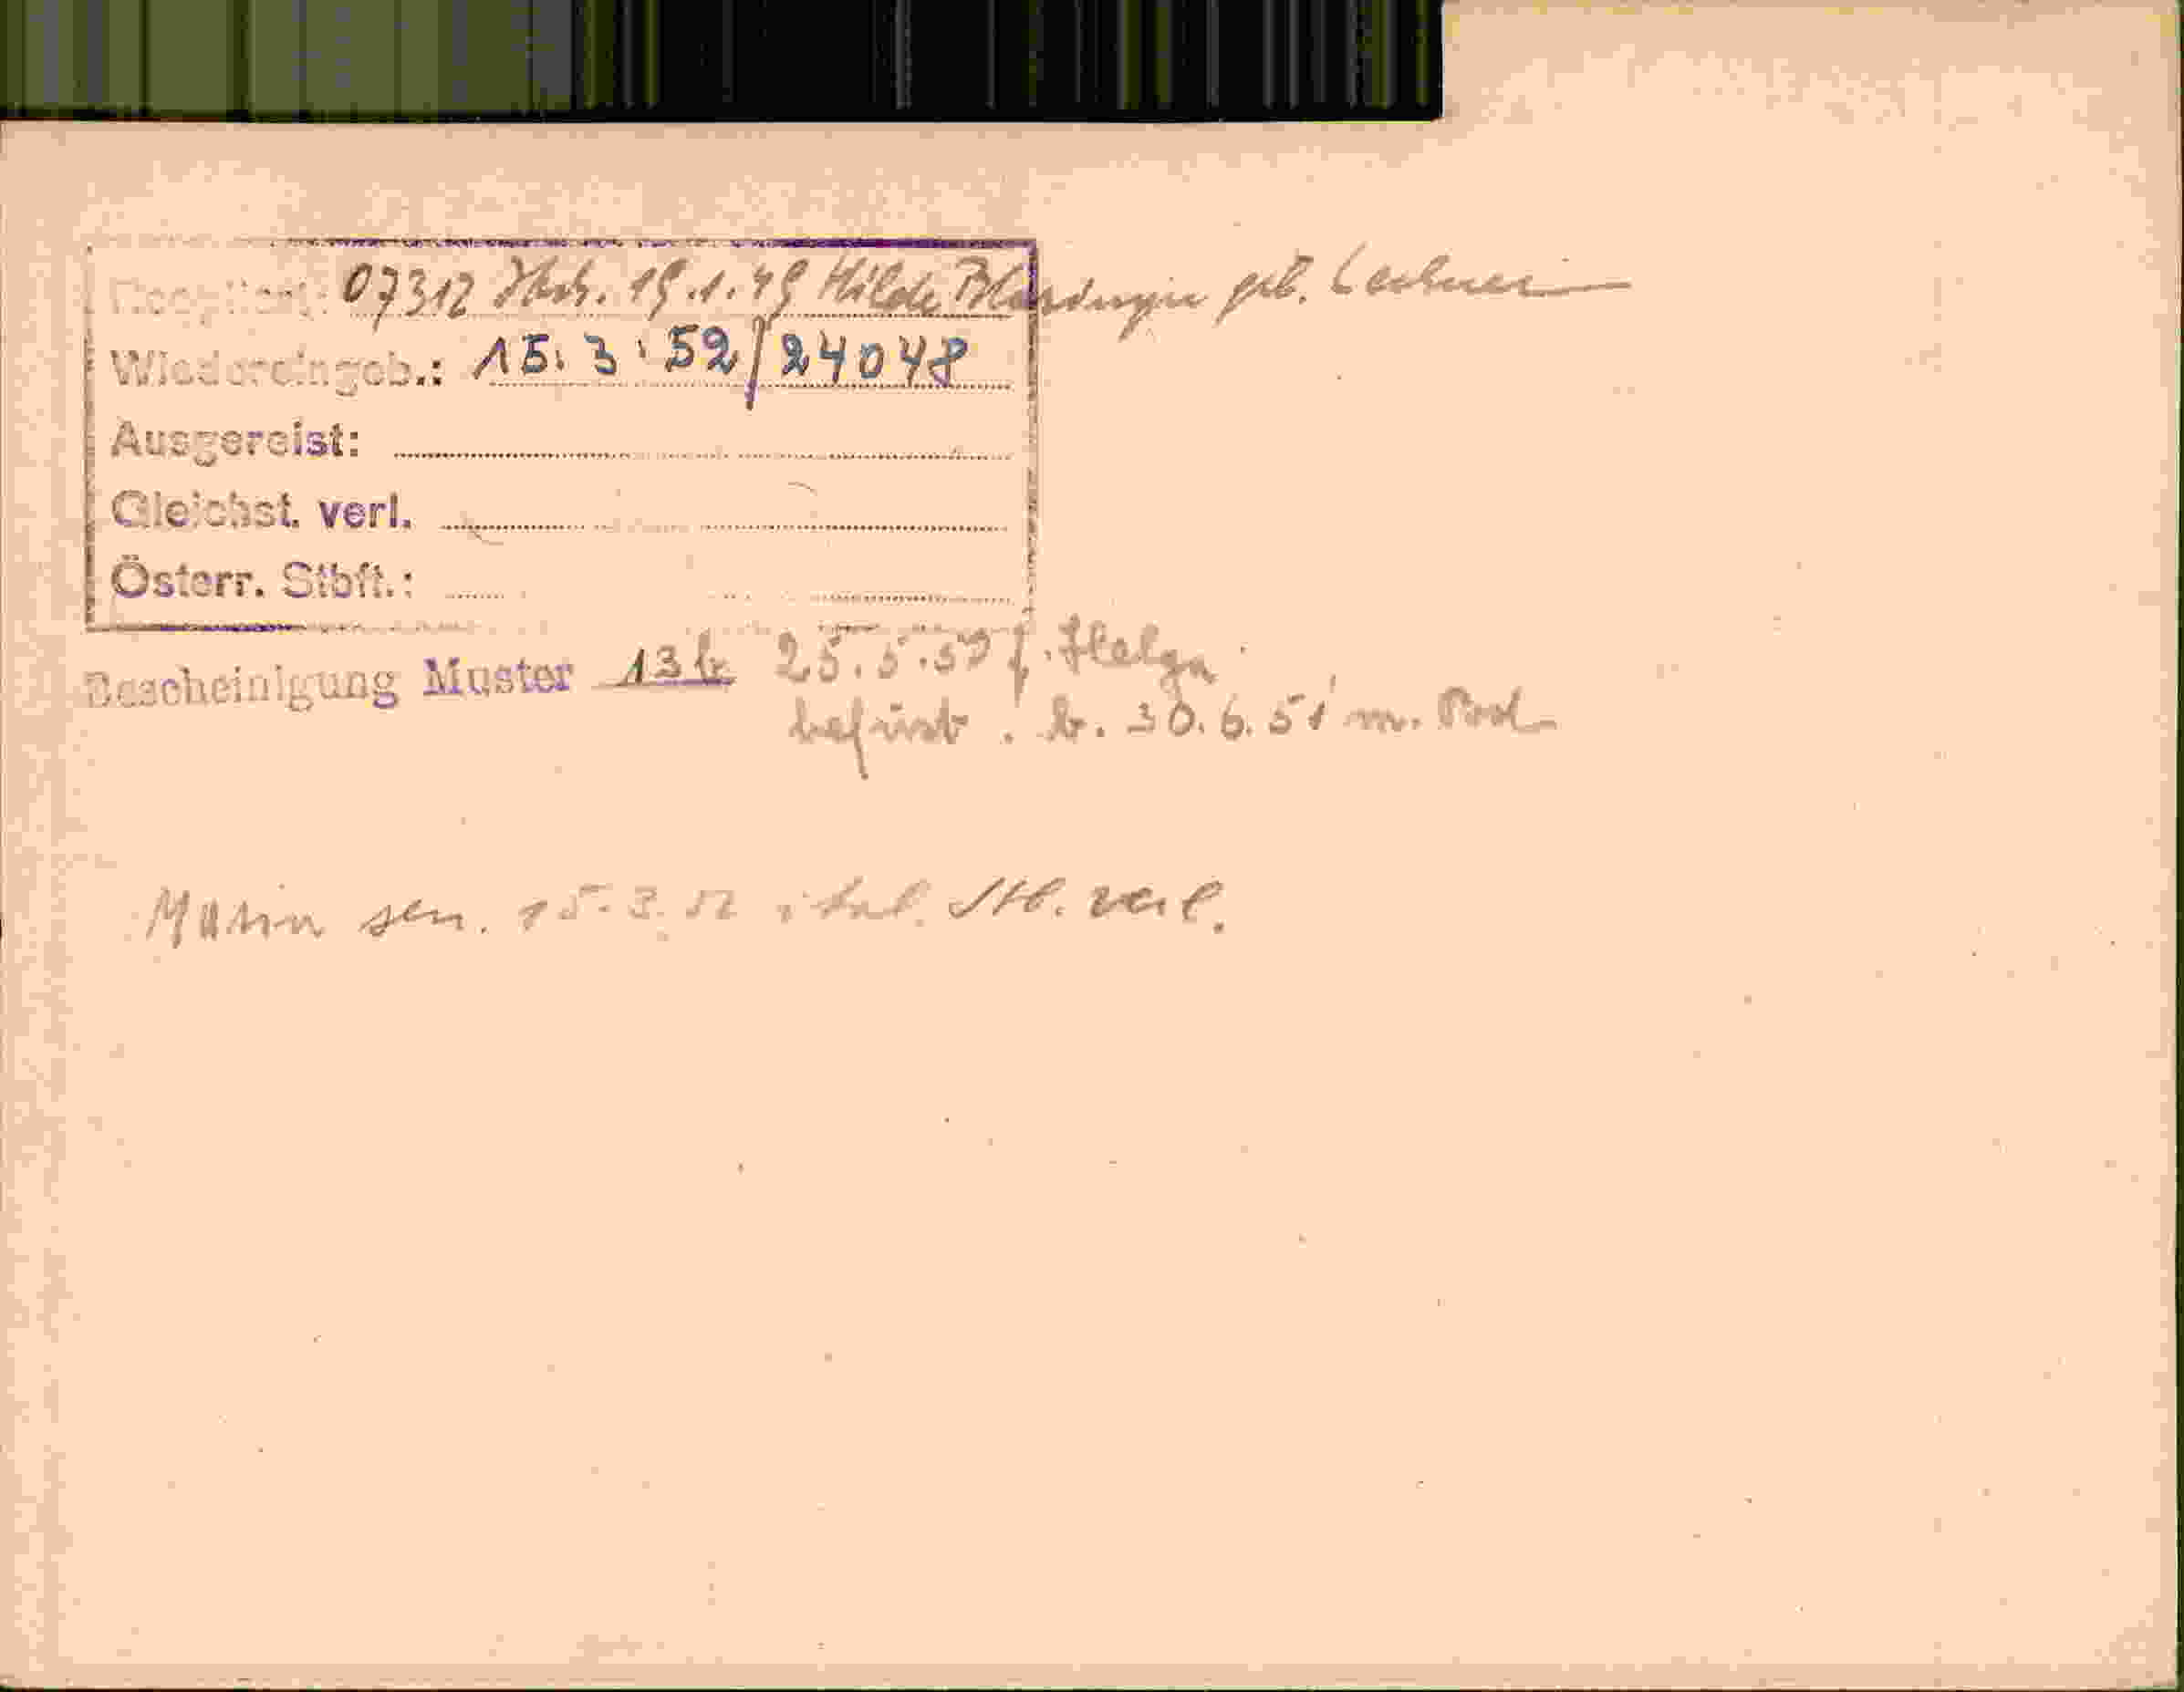 Reoptiert: 07312 Ibk. 19.1.49 Hilde geb. Lechner
Wiedereingeb.: 15.3.52/24048
Ausgereist:
Gleichst. verl.
Österr. Stbft.:
Bescheinigung Muster 13b 25.5.50 f. Helga
befrist. b. 30.6.51 m. Pod
Maria sen. 15.3.52 ital. Stb. verl.